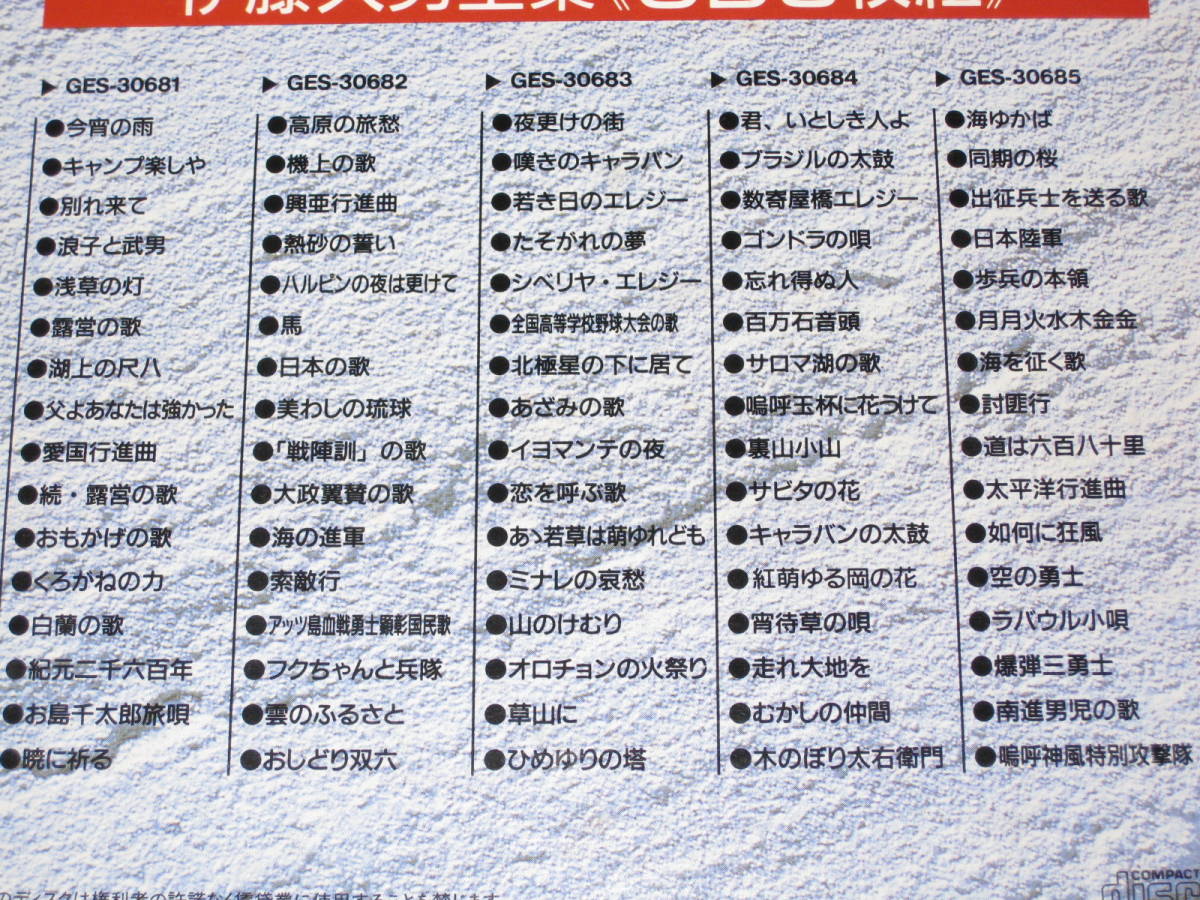 伊藤久男全集《CD5枚組》
▶ GES-30681
●今宵の雨
●キャンプ楽しや
●別れ来て
●浪子と武男
●浅草の灯
●露営の歌
●湖上の尺八
●父よあなたは強かった
●愛国行進曲
●続・露営の歌
●おもかげの歌
●くろがねの力
●白蘭の歌
●紀元二千六百年
●お島千太郎旅唄
●暁に祈る
▶ GES-30682
●高原の旅愁
●機上の歌
●興亜行進曲
●熱砂の誓い
●ハルピンの夜は更けて
●馬
●日本の歌
●美わしの琉球
●「戦陣訓」の歌
●大政翼賛の歌
●海の進軍
●索敵行
●アッツ島血戦勇士顕彰国民歌
●フクちゃんと兵隊
●雲のふるさと
●おしどり双六
▶ GES-30683
●夜更けの街
●嘆きのキャラバン
●若き日のエレジー
●たそがれの夢
●シベリヤ・エレジー
●全国高等学校野球大会の歌
●北極星の下に居て
●あざみの歌
●イヨマンテの夜
●恋を呼ぶ歌
●あゝ若草は萌ゆれども
●ミナレの哀愁
●山のけむり
●オロチョンの火祭り
●草山に
●ひめゆりの塔
▶ GES-30684
●君、いとしき人よ
●ブラジルの太鼓
●数寄屋橋エレジー
●ゴンドラの唄
●忘れ得ぬ人
●百万石音頭
●サロマ湖の歌
●嗚呼玉杯に花うけて
●裏山小山
●サビタの花
●キャラバンの太鼓
●紅萌ゆる岡の花
●宵待草の唄
●走れ大地を
●むかしの仲間
●木のぼり太右衛門
▶ GES-30685
●海ゆかば
●同期の桜
●出征兵士を送る歌
●日本陸軍
●歩兵の本領
●月月火水木金金
●海を征く歌
●討匪行
●道は六百八十里
●太平洋行進曲
●如何に狂風
●空の勇士
●ラバウル小唄
●爆弾三勇士
●南進男児の歌
●嗚呼神風特別攻撃隊
のディスクは権利者の許諾なく賃貸業に使用することを禁じます
COMPACT
disc